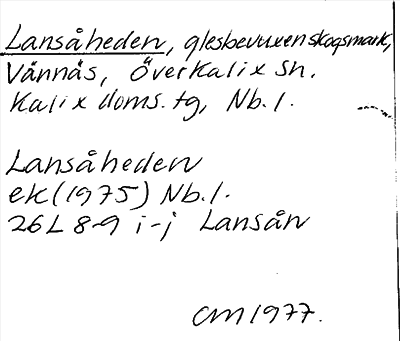 Lansåheden, glesbevuxen skogsmark,
Vännäs, Överkalix sn.
Kalix doms. tg, Nb. l.
Lansåheden
ek (1975) Nb. l.
26L 8-9 i-j Lansån
CM 1977.